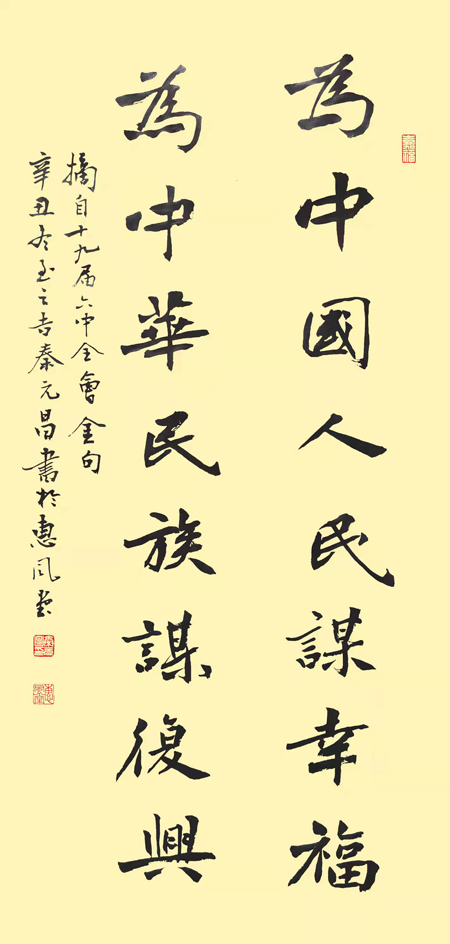 為中國人民謀幸福
為中華民族謀復興
摘自十九届六中全會金句
辛丑冬至之吉秦元昌書於惠風堂